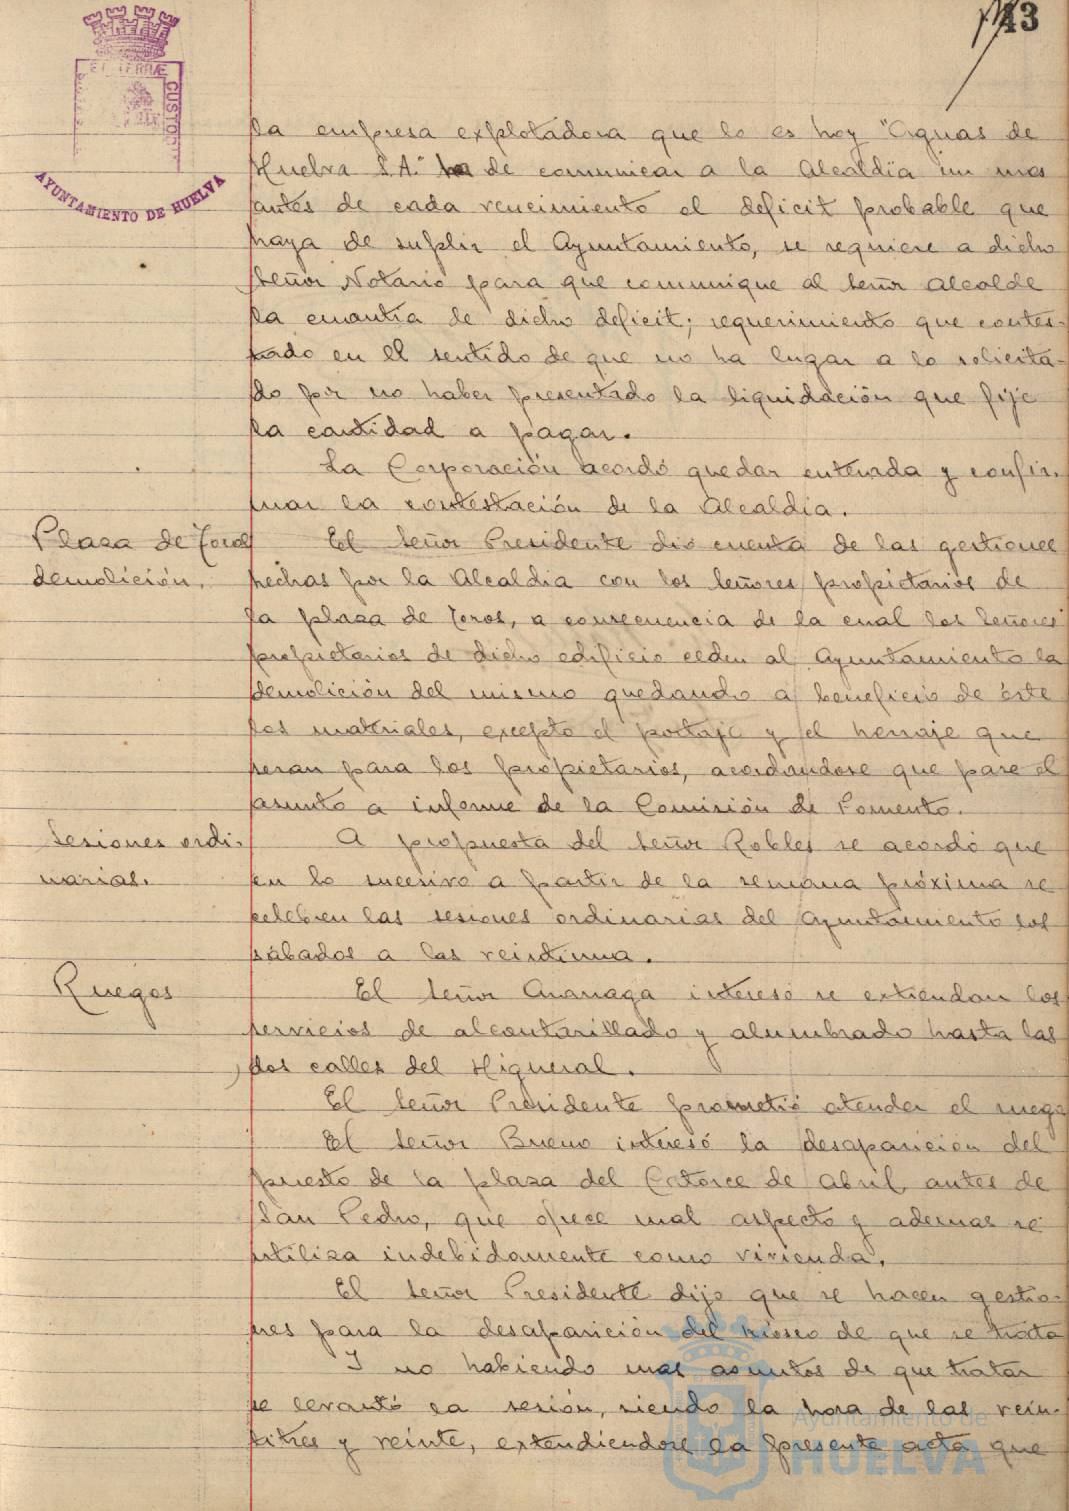 43
ET TERRÆ
CUSTO
AYUNTAMIENTO DE HUELVA
la empresa explotadora que lo es hoy "Aguas de
Huelva S.A." ha de comunicar a la Alcaldia un mes
antes de cada vencimiento el deficit probable que
haya de suplir el Ayuntamiento, se requiere a dicho
Señor Notario para que comunique al Señor Alcalde
la cuantia de dicho deficit; requerimiento que contes-
tado en el sentido de que no ha lugar a lo solicita-
do por no haber presentado la liquidación que fije
la cantidad a pagar.
La Corporación acordó quedar enterada y confir-
mar la contestación de la Alcaldia.
Plaza de Toros
demolición.
El Señor Presidente dió cuenta de las gestiones
hechas por la Alcaldia con los Señores propietarios de
la plaza de Toros, a consecuencia de la cual los Señores
propietarios de dicho edificio ceden al Ayuntamiento la
demolición del mismo quedando a beneficio de éste
los materiales, excepto el portaje y el herraje que
seran para los propietarios, acordandose que pase el
asunto a informe de la Comisión de Fomento.
Sesiones ordi-
narias.
A propuesta del Señor Robles se acordó que
en lo sucesivo a partir de la semana próxima se
celebren las sesiones ordinarias del Ayuntamiento los
sábados a las veintiuna.
Ruegos
El Señor interesó se extiendan los
servicios de alcantarillado y alumbrado hasta las
dos calles del Higueral.
El Señor Presidente prometió atender el ruego
El Señor Bueno interesó la desaparición del
puesto de la plaza del Catorce de Abril, antes de
San Pedro, que ofrece mal aspecto y ademas se
utiliza indebidamente como vivienda.
El Señor Presidente dijo que se hacen gestio-
nes para la desaparición del kiosco de que se trata
Y no habiendo mas asuntos de que tratar
se levantó la sesión, siendo la hora de las vein-
titres y veinte, extendiendose la presente acta que
Ayuntamiento de
HUELVA